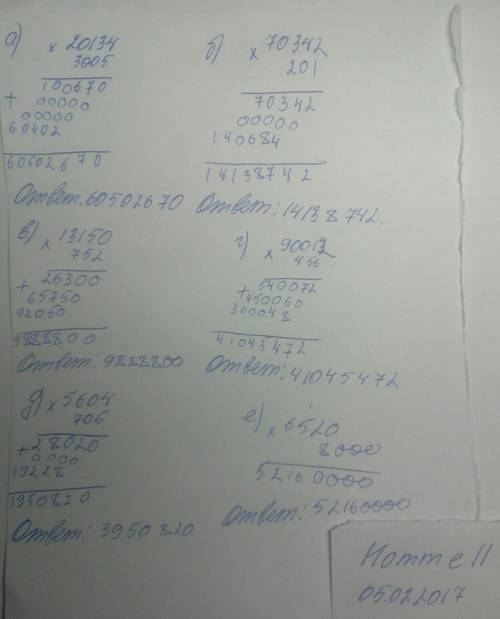 а) × 20134
3005
100670
+ 00000
00000
60402
60502670
Ответ: 60502670
б) × 70342
201
70342
00000
140684
14138742
Ответ: 14138742.
в) × 13150
752
+ 26300
65750
92050
9888800
Ответ: 9888800
г) × 90012
456
+ 540072
450060
360048
41045472
Ответ: 41045472
д) × 5604
705
+ 28020
0000
39228
3950820
Ответ: 3950820
е) × 6520
8000
52160000
Ответ: 52160000
Hommell
05.022017